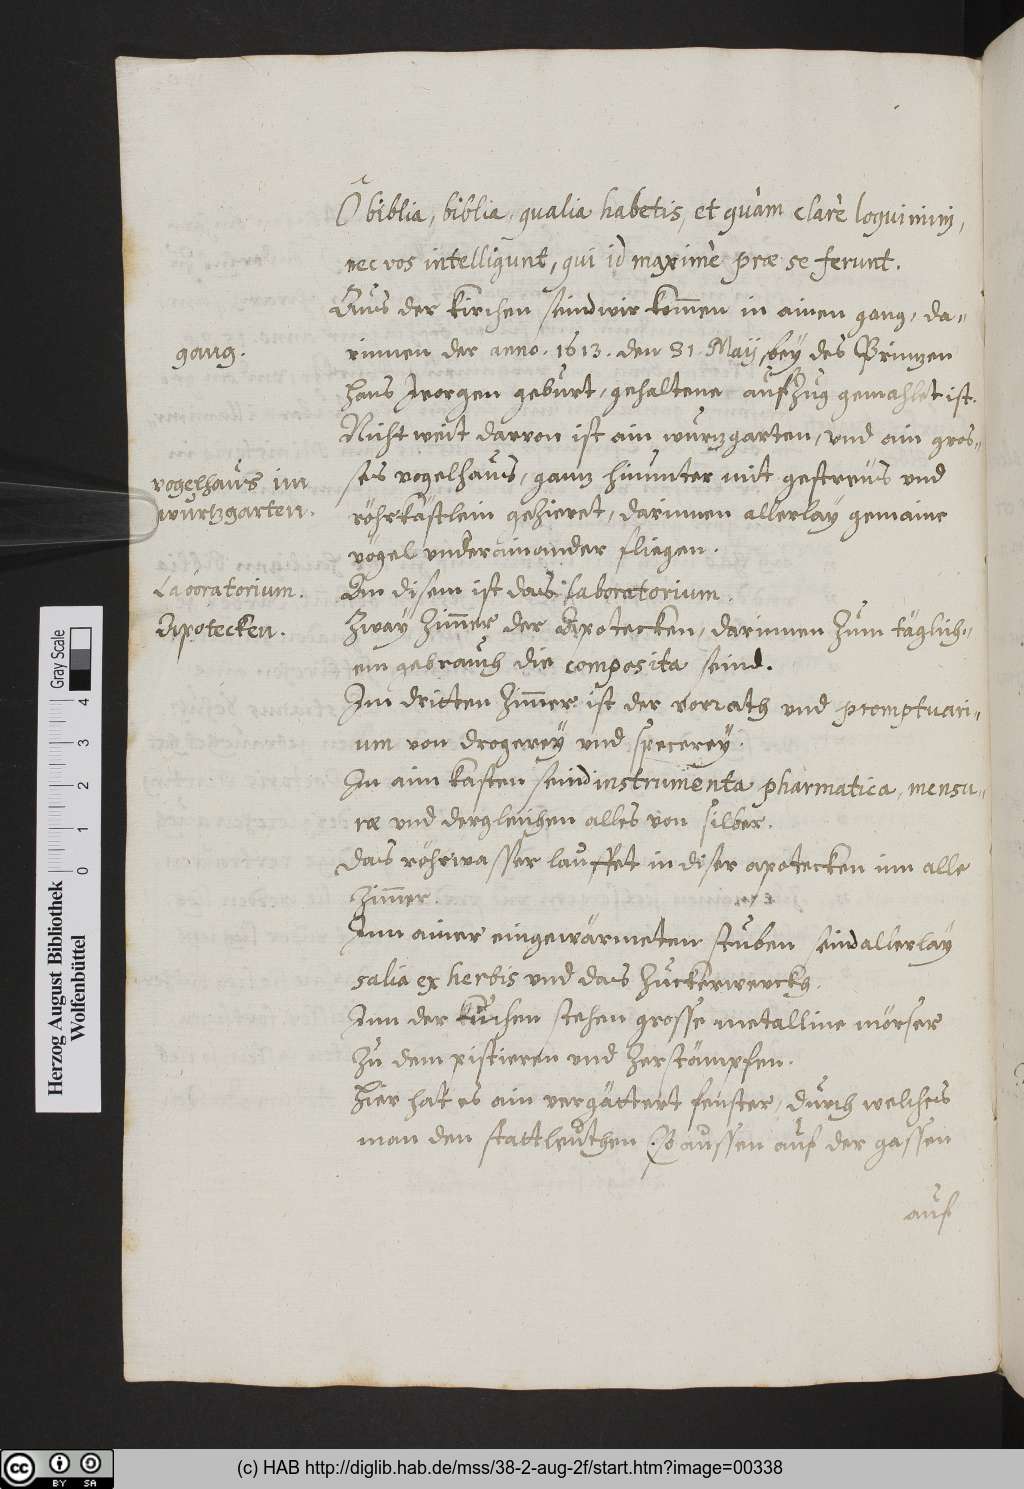 O biblia, biblia, qualia habetis, et quàm clarè loquimini,
nec vos intelligunt, qui id maximè præ se ferunt.
Aus der kirchen seind wir kom̄en in ainen gang, da-
gang.
rinnen der anno. 1613. den 31. Maij, bey des Printzen
hans Georgen geburt, gehaltene aufZug gemahlet ist.
Nicht weit darvon ist ain wurzgarten, und ain gros-
vogelhaus im
ses vogelhaus, ganz hinunter mit gestreüs und
wurtzgarten.
röhrkästlein gezieret, darinnen allerlay gemaine
vögel underainander fliegen.
Laboratorium.
An disem ist das laboratorium.
Apotecken.
Zway Zim̄er der Apotecken, darinnen Zum täglich-
em gebrauch die composita seind.
Im dritten Zim̄er ist der vorrath und promptuari-
um von drogerey und specerey.
In aim kasten seind instrumenta pharmatica, mensu-
ræ und dergleichen alles von silber.
Das röhrwasser lauffet in diser apotecken inn alle
Zim̄er.
Inn ainer eingewärmeten stuben seind allerlay
salia ex herbis und das Zuckerwerckh.
Inn der kuchen stehen grosse metalline mörser
Zu dem pistieren und Zerstämpfen.
Hier hat es ain vergättert fenster, durch welches
man den stattleuthen daussen auf der gassen
auf
Herzog August Bibliothek
Wolfenbüttel
0 1 2 3 4
Gray Scale
cc BY SA
(c) HAB http://diglib.hab.de/mss/38-2-aug-2f/start.htm?image=00338